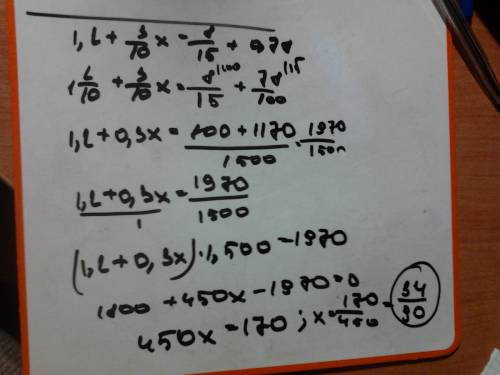 1,2 + 3/10 x = 8/15 + 0,78
1 2/10 + 3/10 x = 8/15 |100 + 78/100 |15
1,2 + 0,3x = 800 + 1170 / 1500 = 1970/1500
1,2 + 0,3x / 1 = 1970/1500
(1,2 + 0,3x) · 1,500 - 1970
1800 + 450x - 1970 = 0
450x = 170 ; x = 170/450 = 34/90